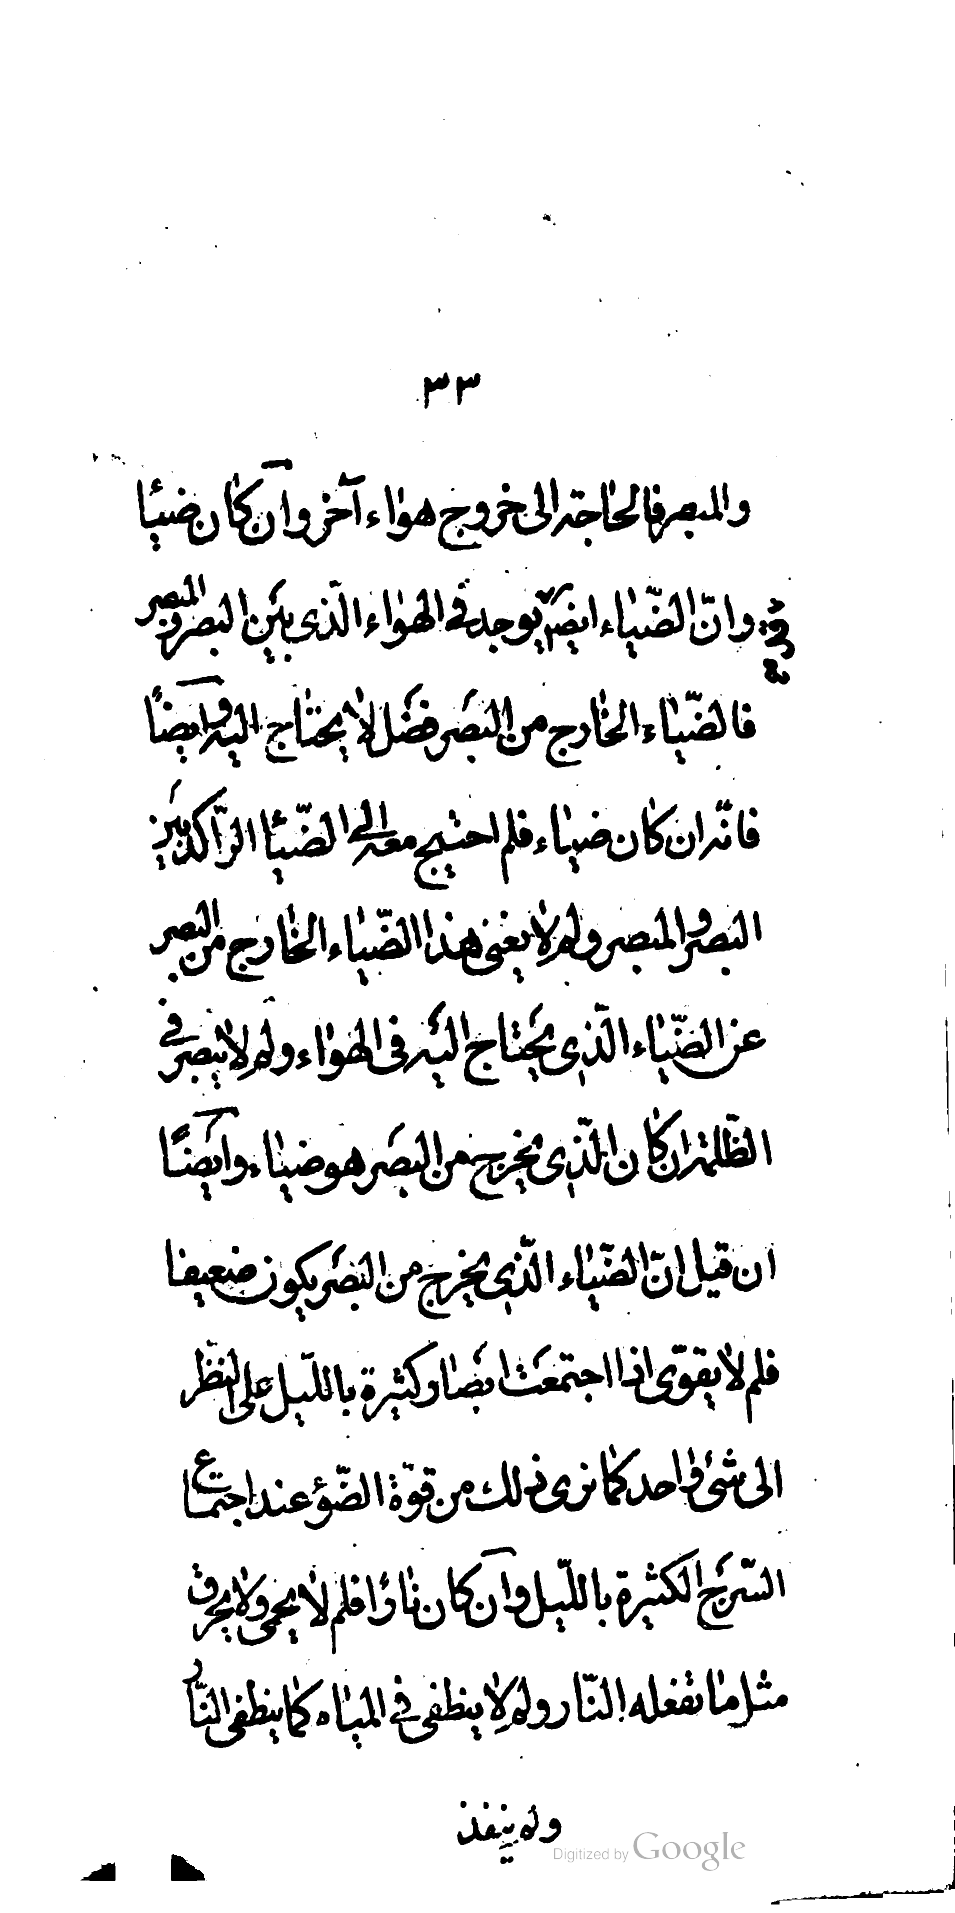 ٣٣
والمبصر فالحاجة الى خروج هواء آخر وان كان ضيئا
وانّ الضّياء ايضا يوجد في الهواء الّذى بين البصر والمبصر
فالضّياء الخارج من البصر فضل لا يحتاج اليه وايضا
فانّه ان كان ضياء فلم احتيج معه الى الضّيئا الرّاكد بين
البصر والمبصر ولم لا يغنى هذا الضّياء الخارج من البصر
عن الضّياء الّذى يحتاج اليه فى الهواء ولم لا يبصر فى
الظّلمة ان كان الّذى يخرج من البصر هو ضياء وايضا
ان قيل انّ الضّياء الّذى يخرج من البصر يكون ضعيفا
فلم لا يقوّى اذا اجتمعت ابصار كثيرة باللّيل على النظر
الى شئ واحد كما نرى ذلك من قوّة الضّؤ عند اجتماع
السّرج الكثيرة باللّيل وان كان نارا فلم لا يحمى ولا يحرق
مثل ما تفعله النّار ولم لا ينطفى فى المياه كما ينطفى النّار
ولم ينفذ
Digitized by Google